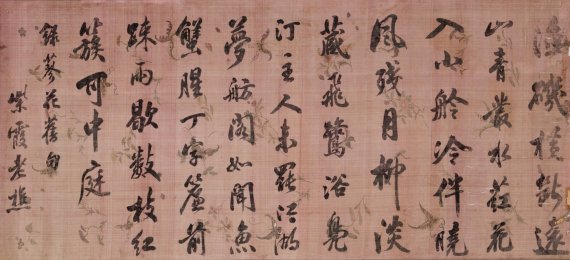 漁磯橫對遠
山青叢水葒花
入小舲冷伴曉
風殘月柳淡
藏飛鷺浴鳧
汀主人未罷江湖
夢舫閣如聞魚
蟹腥丁字簾前
踈雨歇數枝紅
簇可中庭
錄蓼花舊句
紫霞老樵